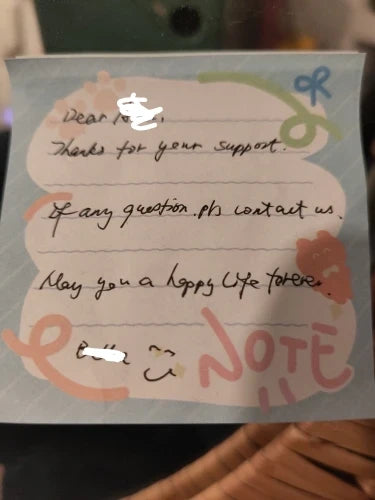 Dear
Thanks for your support.
If any question. pls contact us.
May you a happy life forever.
NOTE